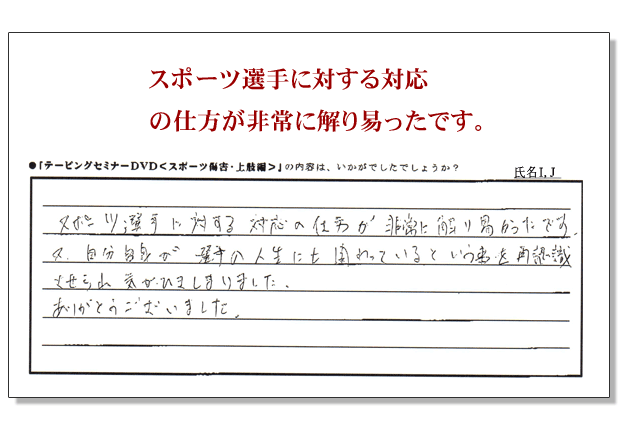 スポーツ選手に対する対応
の仕方が非常に解り易ったです。
●『テーピングセミナーDVD<スポーツ傷害・上肢編>』の内容は、いかがでしたでしょうか?
氏名I,J
スポーツ選手に対する対応の仕方が非常に解り易かったです。
又、自分自身が選手の人生にも関わっているという事を再認識
させられ気がひきしまりました。
ありがとうございました。